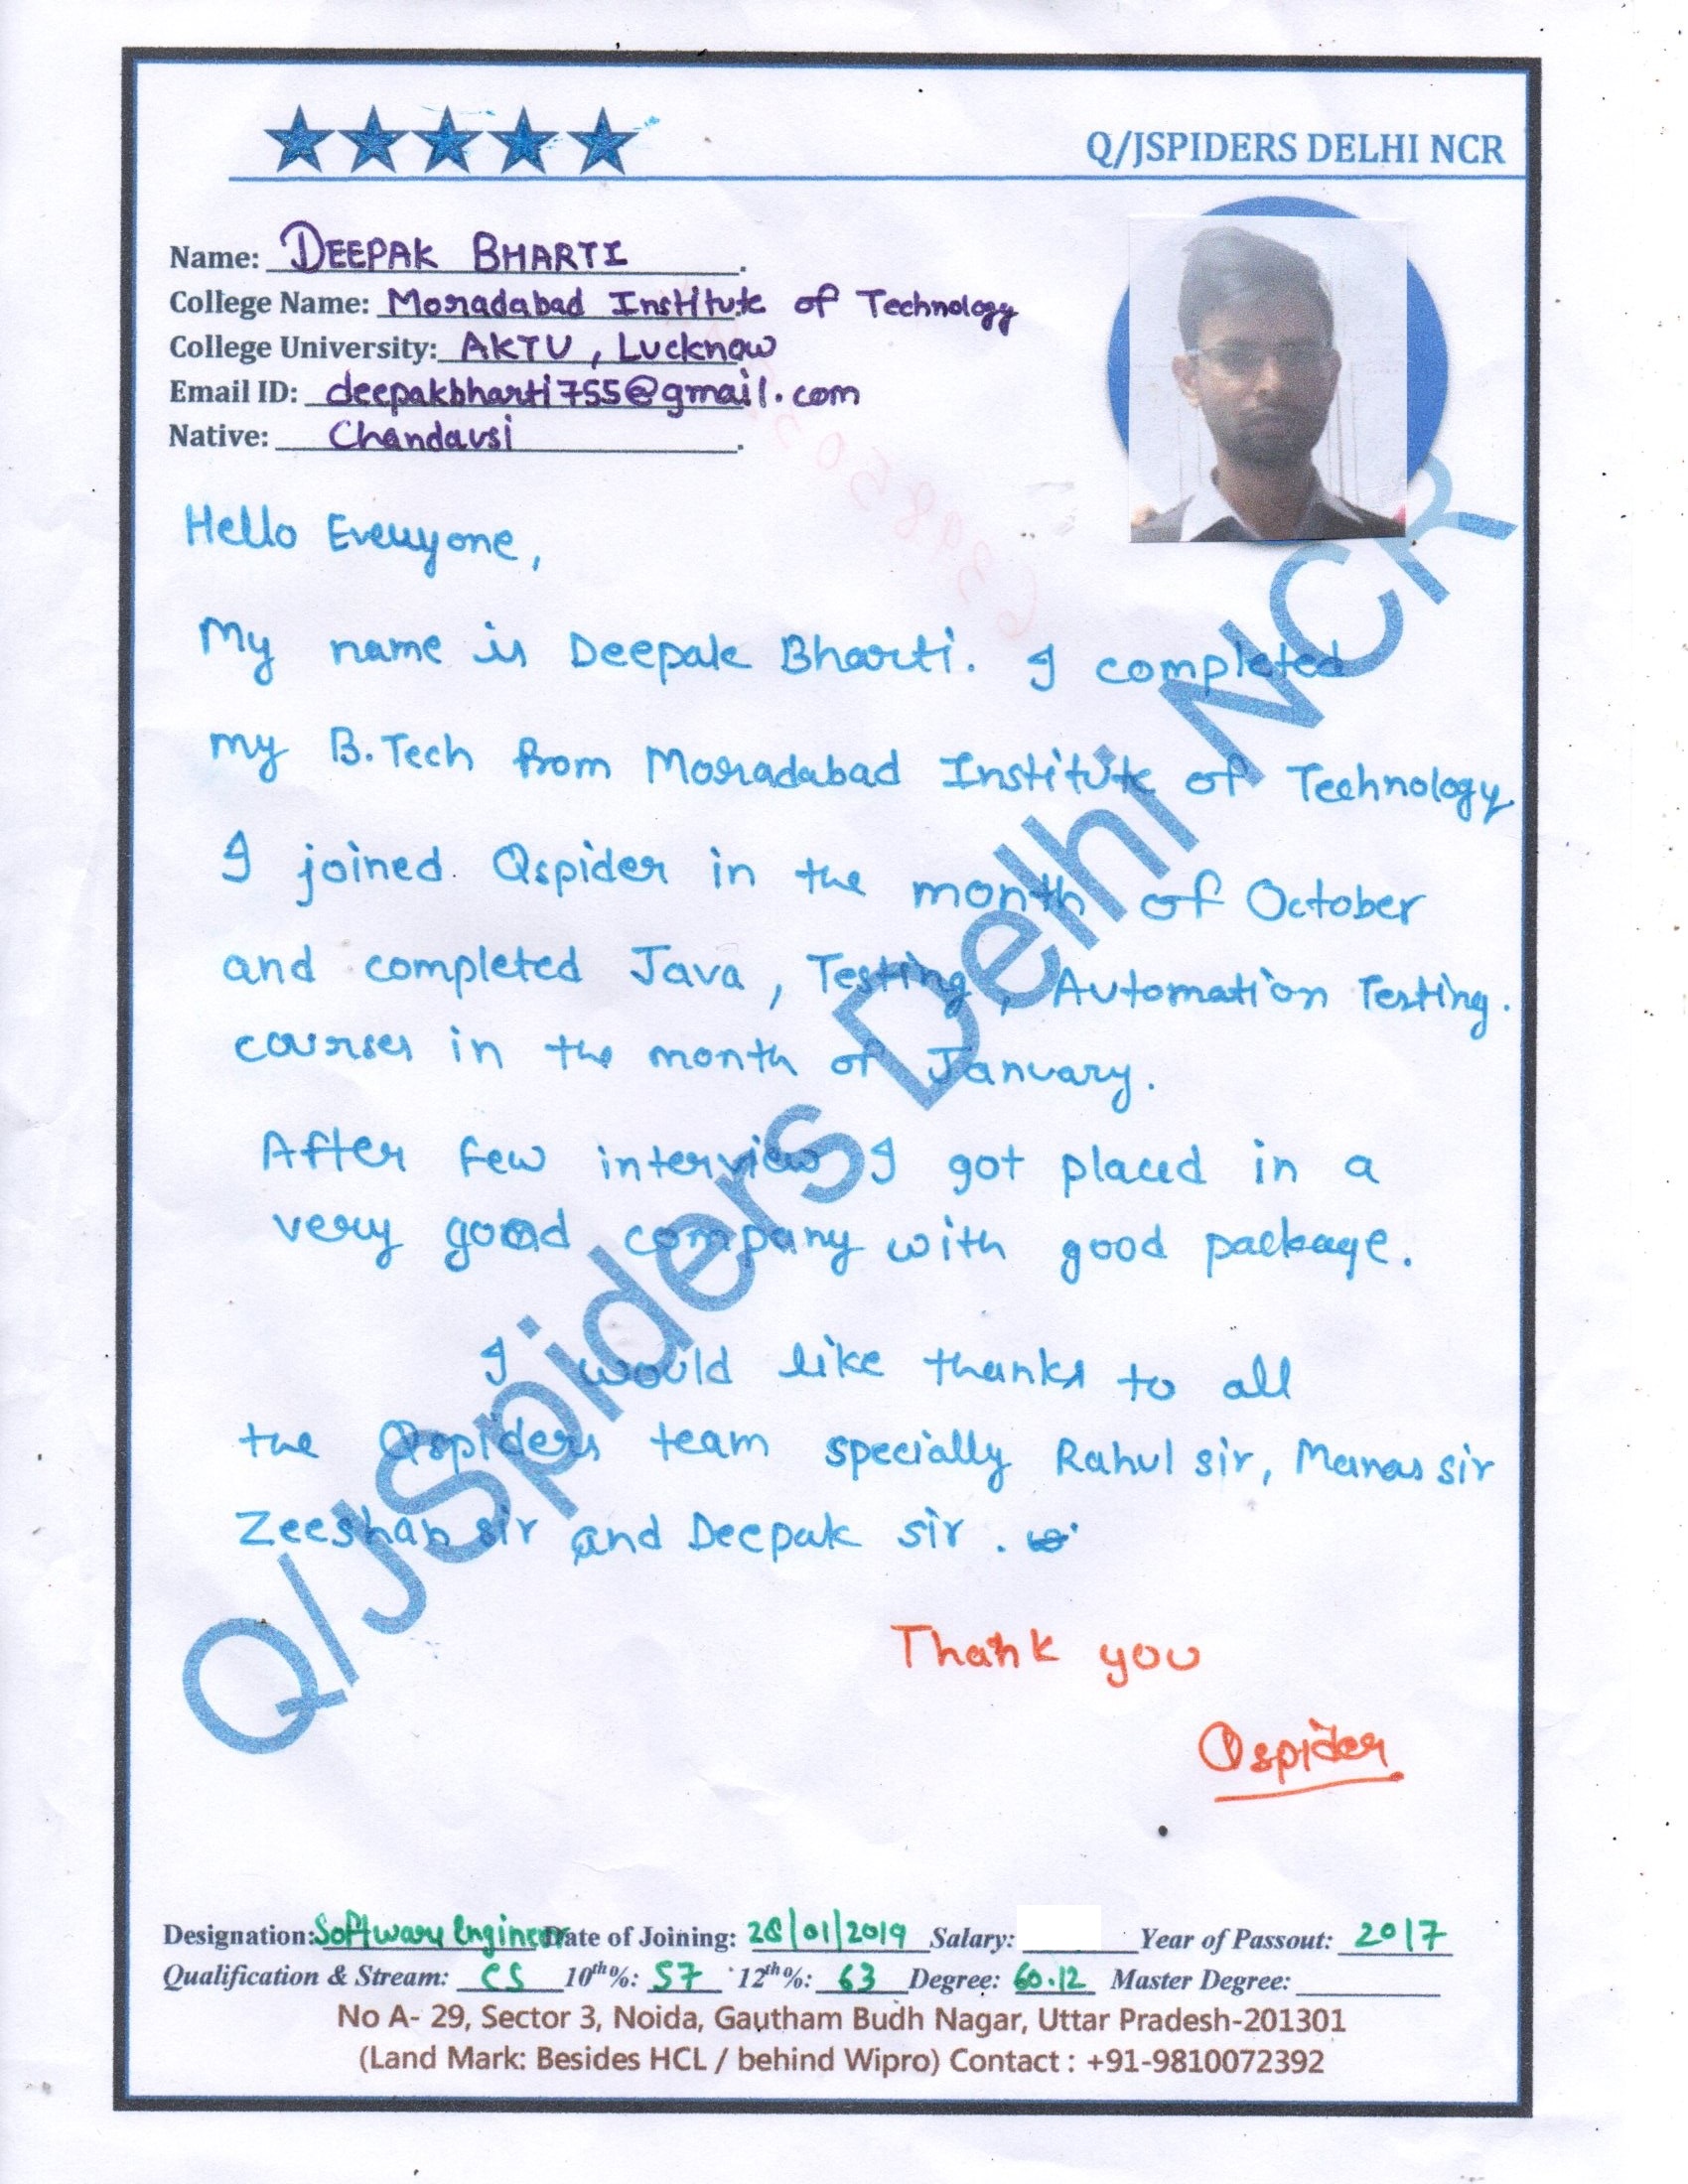 Q/JSPIDERS DELHI NCR
Name: DEEPAK BHARTI
College Name: Moradabad Institute of Technology
College University: AKTU, Lucknow
Email ID: deepakbharti755@gmail.com
Native: Chandausi
Hello Everyone,
My name is Deepak Bharti. I completed
my B.Tech from Moradabad Institute of Technology.
I joined Qspider in the month of October
and completed Java, Testing, Automation Testing.
courses in the month of January.
After few interview I got placed in a
very good company with good package.
I would like thanks to all
the Qspiders team specially Rahul sir, Manas sir
Zeeshan sir and Deepak sir.
Q/JSpiders Delhi NCR
Thank you
Qspider
Designation: Software Engineer Date of Joining: 28/01/2019 Salary: Year of Passout: 2017
Qualification & Stream: CS 10th%: 57 12th%: 63 Degree: 60.12 Master Degree:
No A- 29, Sector 3, Noida, Gautham Budh Nagar, Uttar Pradesh-201301
(Land Mark: Besides HCL / behind Wipro) Contact : +91-9810072392